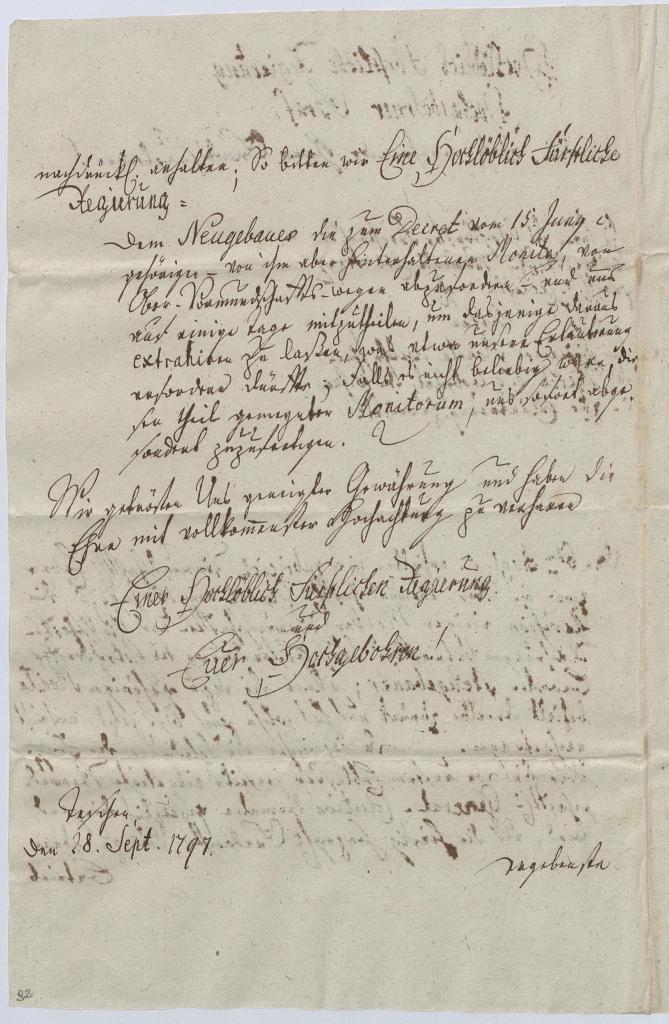 nachdrückl. anhalten; So bitten wir Eine Hochlöblich Fürstliche
Regierung =
Dem Neugebauer die zum Decret vom 15. Juny c.
gehörige – von ihm aber hinterhaltenen Monita, von
Ober-Vormundschafts-wegen abzufordern – und uns
auf einige Tage mitzutheilen, um dasjenige daraus
extrahiren zu laßen, was etwa unsere Erläuterung
erfordern dürfte, Falls es nicht beliebig wäre, die-
sen theil Monitorum, uns sofort abge-
sondert zuzufertigen.
Wir getrösten Uns geneigter Gewährung und haben die
Ehre mit vollkommenster Hochachtung zu verharren
Einer Hochlöblich Fürstlichen Regierung
und
Euer Hochgebohren!
Teschen,
den 28. Sept. 1797.
ergebenste
92